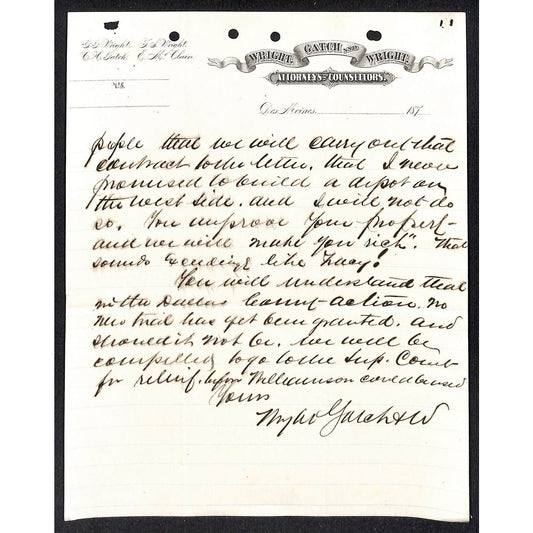 G.G. Wright. T.S. Wright.
C.H. Gatch. E. McClain.
WRIGHT, GATCH AND WRIGHT,
ATTORNEYS AND COUNSELLORS.
Des Moines, 187
people that we will carry out that
contract to the letter, that I never
promised to build a depot on
the west side, and I will not do
so. You improve your property
and we will make you rich". That
sounds & reading like Lacy!
You will understand that
in the Dallas County action, no
new trial has yet been granted, and
should it not be, we will be
compelled to go to the Sup. Court
for relief, before Williamson could be used
Yours
Wright Gatch & W